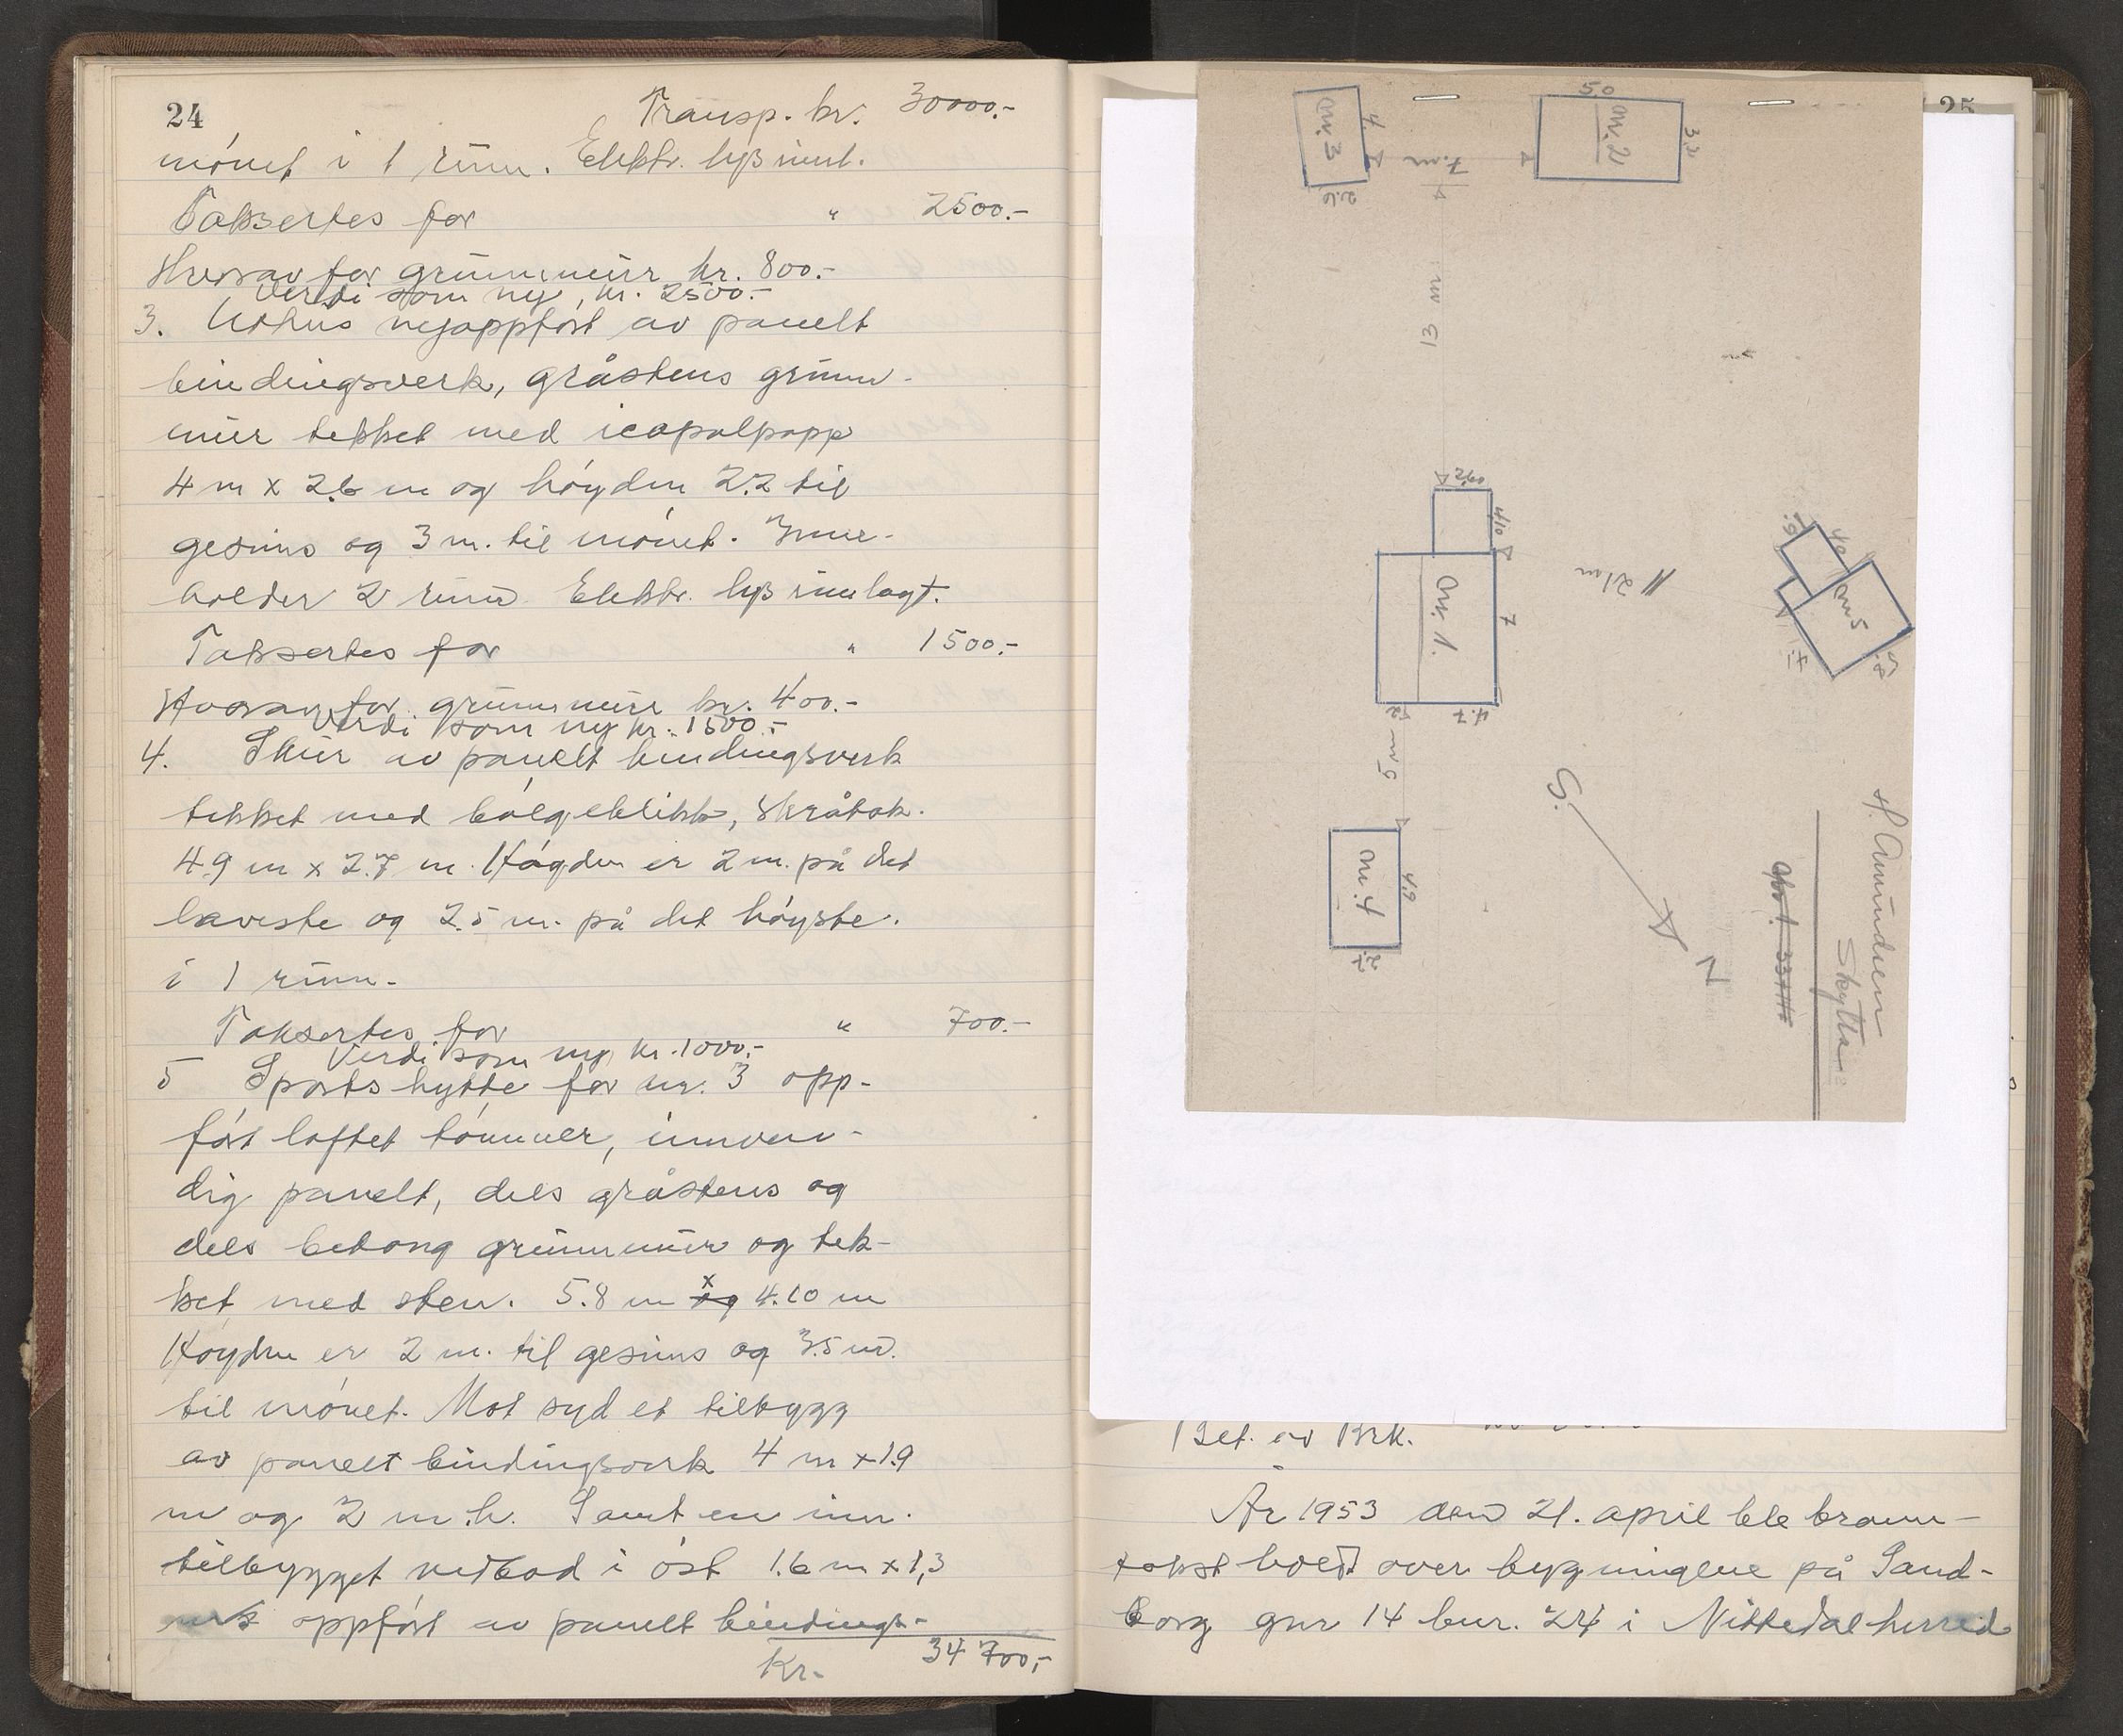 24
Transp. kr. 30000.-
mönet i 1 rum. Elektr. lys innl.
Taksertes for " 2500.-
Hvorav for grunnmur kr. 800.-
Verdi som ny, kr. 2500.-
3. Uthus nyoppført av panelt
bindingsverk, gråstens grunn-
mur tekket med icopalpapp
4 m x 2.6 m og höyden 2.2 til
gesims og 3 m. til mönet. Inne-
holder 2 rum Elektr. lys innlagt.
Taksertes for " 1500.-
Hvorav for grunnmur kr. 400.-
Verdi som ny kr. 1500.-
4. Skur av panelt bindingsverk
tekket med bölgeblikk, skråtak.
4.9 m x 2.7 m. Höyden er 2 m. på det
laveste og 2.5 m. på det höyste.
i 1 rum.
Taksertes for " 700.-
Verdi som ny kr. 1000.-
5 Sportshytte for nr. 3 opp-
fört laftet tömmer, innven-
dig panelt, dels gråstens og
dels betong grunnmur og tek-
ket med sten. 5.8 m og x 4.10 m
Höyden er 2 m. til gesims og 3.5 m.
til mönet. Mot syd et tilbygg
av panelt bindingsverk 4 m x 1.9
m og 2 m.h. Samt en inn-
tilbygget vedbod i öst 1.6 m x 1,3
oppfört av panelt bindings-
Kr. 34 700,-
25
nr. 3
4.
2.6
7. m
5.0
nr. 2
3.3
13 m
4.10
nr. 1.
7
4.7
5 m
21 m
nr 5
4.9
nr. 4
2.7
S.
N
H. Amundsen
Skytta
Bet. av Brk.
År 1953 den 21. april ble brann-
takst holdt over bygningene på Sand-
borg gnr 14 bnr. 24 i Nittedal herred